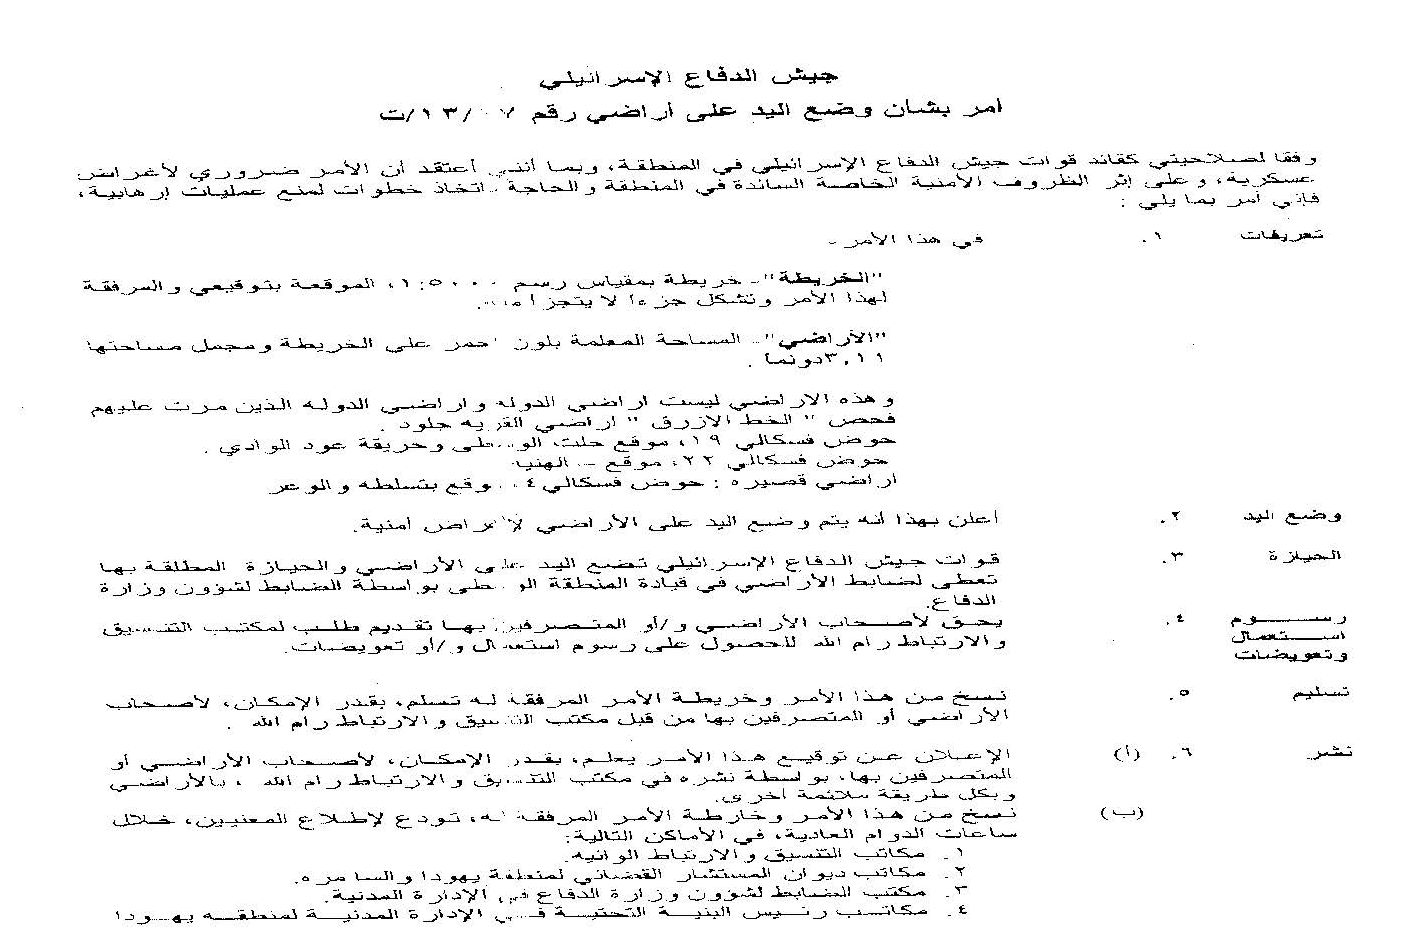 جيش الدفاع الإسرائيلي
امر بشان وضع اليد على أراضي رقم ٠٧/١٣/ت
وفقا لصلاحيتي كقائد قوات جيش الدفاع الإسرائيلي في المنطقة، وبما أنني أعتقد أن الأمر ضروري لأغراض
عسكرية، وعلى إثر الظروف الأمنية الخاصة السائدة في المنطقة والحاجة لاتخاذ خطوات لمنع عمليات إرهابية،
فإني آمر بما يلي :
تعريفات ١. في هذا الأمر-
"الخريطة"- خريطة بمقياس رسم ١:٥٠٠٠، الموقعة بتوقيعي والمرفقة
لهذا الأمر وتشكل جزءا لا يتجزأ منه.
"الأراضي"- المساحة المعلمة بلون احمر على الخريطة ومجمل مساحتها
٣,١١دونما .
وهذه الاراضي ليست اراضي الدوله واراضي الدوله الذين مرت عليهم
فحص " الخط الازرق " اراضي القريه جلود .
حوض فسكالي ١٩، موقع حلت الوسطى وحريقة عود الوادي .
حوض فسكالي ٢٢، موقع – الهنيا
اراضي قصيره : حوض فسكالي ٤ موقع بتسلطه والوعر
وضع اليد ٢. أعلن بهذا أنه يتم وضع اليد على الأراضي لأغراض أمنية.
الحيازة ٣. قوات جيش الدفاع الإسرائيلي تضع اليد على الأراضي والحيازة المطلقة بها
تعطى لضابط الأراضي في قيادة المنطقة الوسطى بواسطة الضابط لشؤون وزارة
الدفاع.
رســـوم استعمال وتعويضات ٤. يحق لأصحاب الأراضي و/أو المتصرفين بها تقديم طلب لمكتب التنسيق
والارتباط رام الله للحصول على رسوم استعمال و/أو تعويضات.
تسليم ٥. نسخ من هذا الأمر وخريطة الأمر المرفقة له تسلم، بقدر الإمكان، لأصحاب
الأراضي أو المتصرفين بها من قبل مكتب التنسيق والارتباط رام الله .
نشر ٦. (أ) الإعلان عن توقيع هذا الأمر يعلم، بقدر الإمكان، لأصحاب الأراضي أو
المتصرفين بها، بواسطة نشره في مكتب التنسيق والارتباط رام الله ، بالأراضي
وبكل طريقة ملائمة أخرى.
(ب) نسخ من هذا الأمر وخارطة الأمر المرفقة له، تودع لإطلاع المعنيين، خلال
ساعات الدوام العادية، في الأماكن التالية:
١. مكاتب التنسيق والارتباط الوائيه.
٢. مكاتب ديوان المستشار القضائي لمنطقة يهودا والسامره.
٣. مكتب الضابط لشؤون وزارة الدفاع في الإدارة المدنية.
٤. مكاتب رئيس البنية التحتية في الإدارة المدنية لمنطقه يهودا